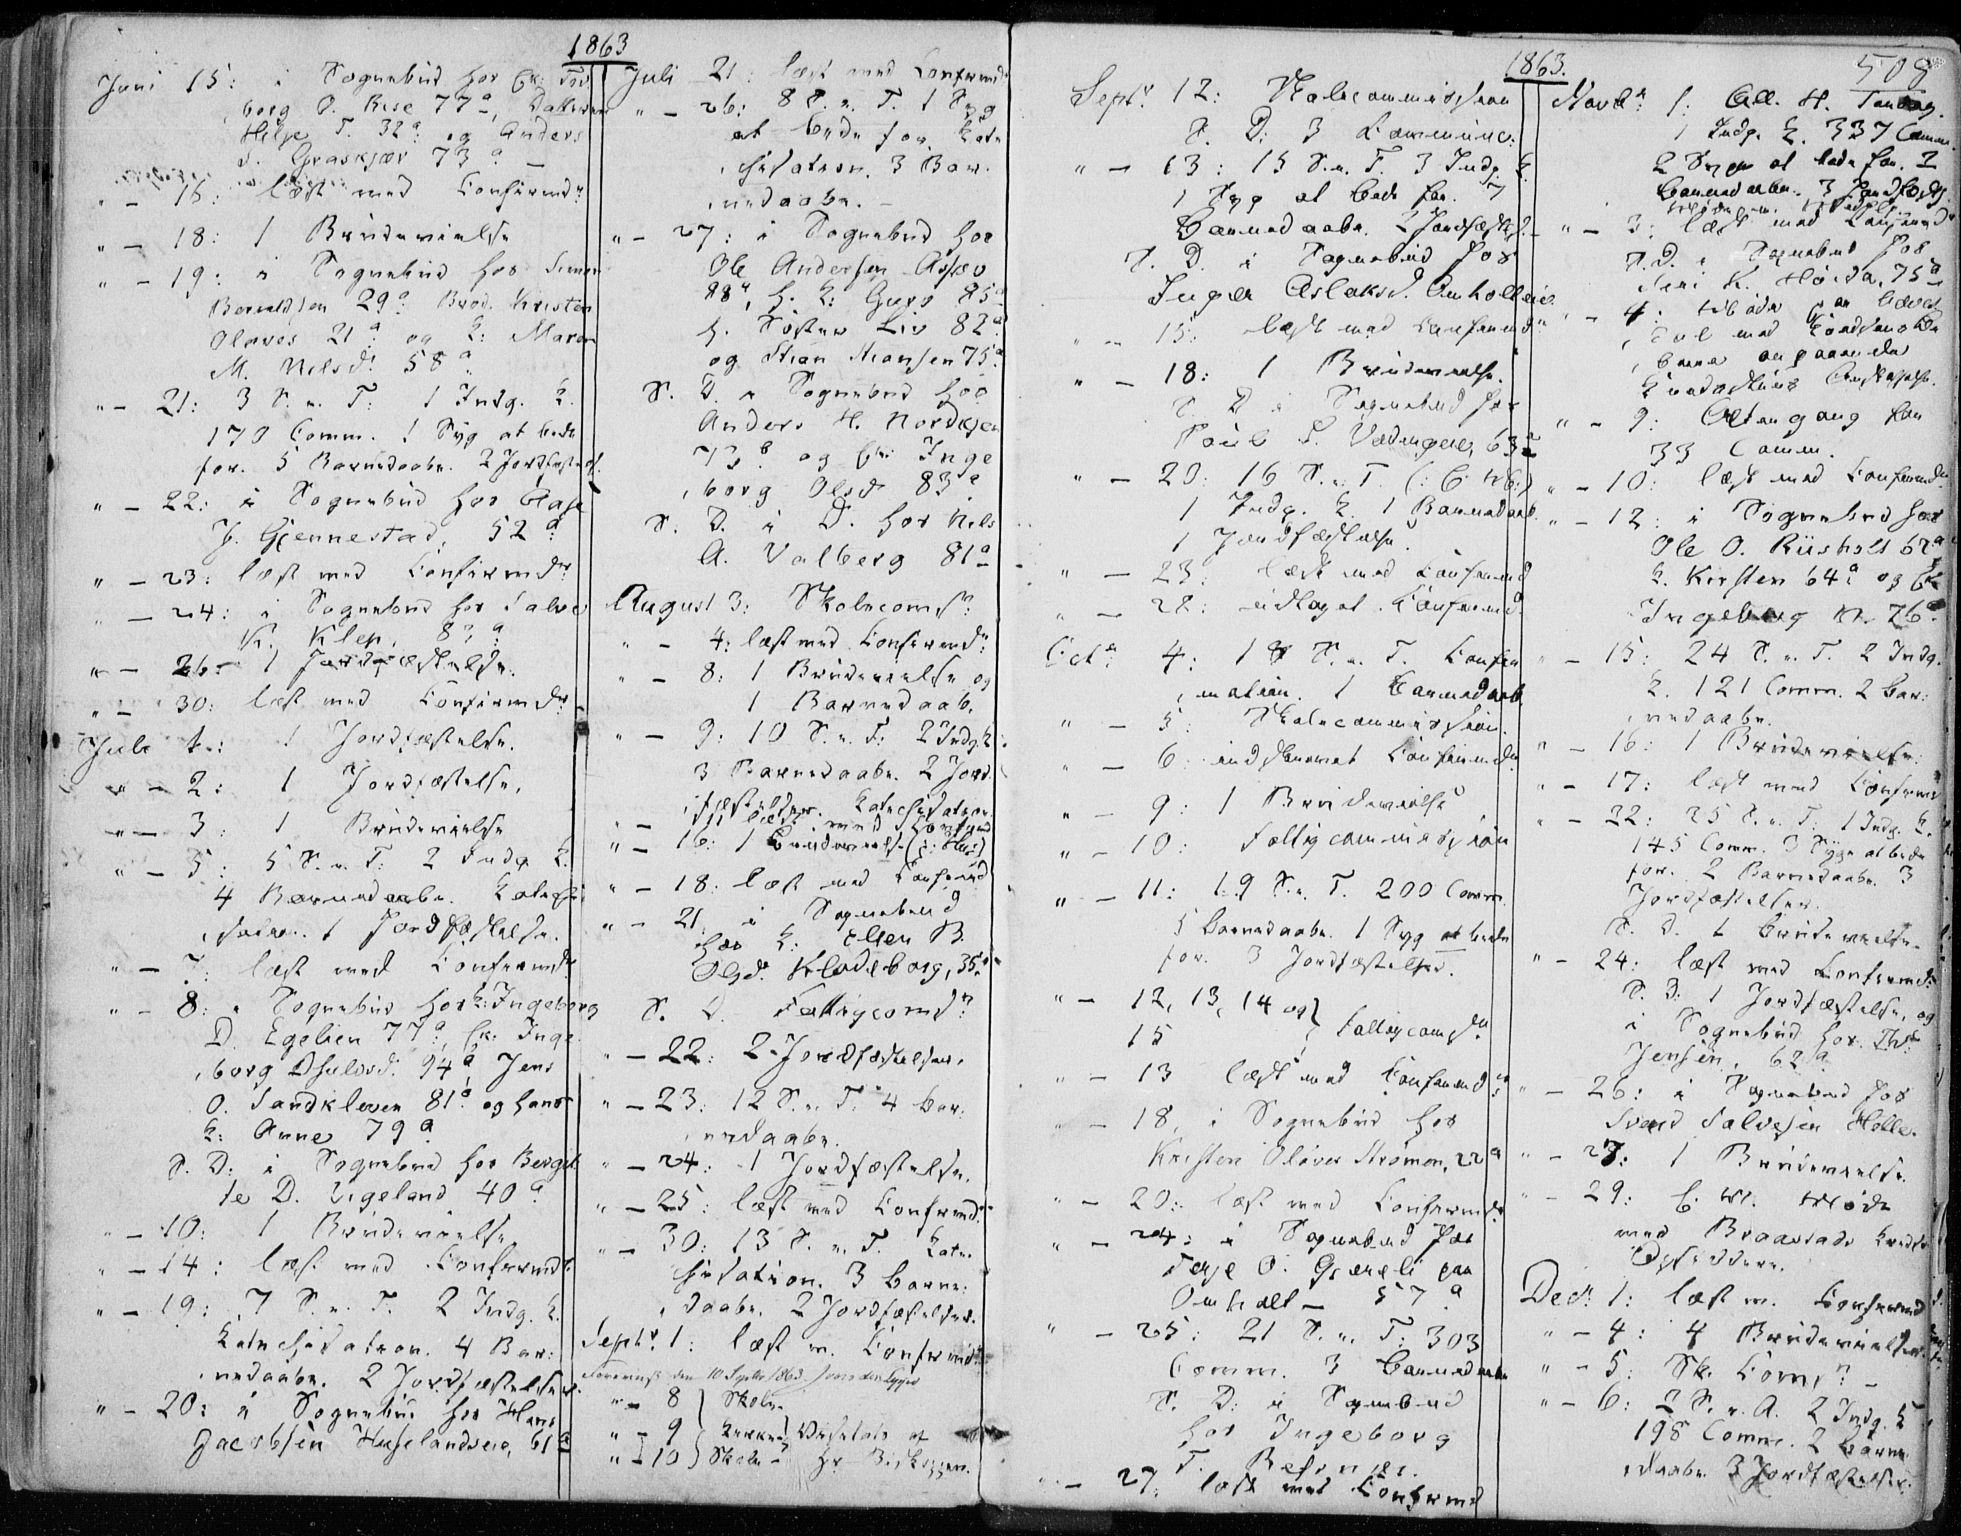 1863
Juni 15: i Sognebud hos Gk: Tor
borg O. Rise 77ª,
Helje T. 32ª og Anders
S. Graskjær 73ª –
" – 16: læst med Confirmdr
" – 18: 1 Brudevielse
" – 19: i Sognebud hos Simon
29ª. Brod. Kristen
Olaves 21ª og K: Maren
M. Nilsd. 58ª
" – 21: 3 S. e. T: 1 Indg. K.
170 Comm. 1 Syg at bede
for. 5 Barnedaabe. 2 Jordfæstels.
" – 22: i Sognebud hos Aase
J. Gjennestad, 52ª
" – 23: læst med Confirmdr
" – 24: i Sognebud hos Salve
K. Klep,
" – 26: 1 Jordfæstelse.
" – 30: læst med Confirmdr
Juli 1: 1 Jordfæstelse.
" – 2: 1 Jordfæstelse.
" – 3: 1 Brudevielse
" – 5: 5 S. e. T: 2 Indg. K.
4 Barnedaabe. Katechi
sation. 1 Jordfæstelse.
" – 7: læst med Confirmdr
" – 8: i Sognebud hos K: Ingeborg
D. Egelien 77ª, Gk: Inge
borg 94ª Jens
O. Sandkleven 81ª og hans
K: Anne 79ª
S. D: i Sognebud hos Berget
te D. Vigeland 40ª
" – 10: 1 Brudevielse
" – 14: læst med Confirmdr
" – 19: 7 S. e. T. 2 Indg. K.
Katechisation. 4 Bar:
nedaabe. 2 Jordfæstelser.
" – 20: i Sognebud hos Hans
Jacobsen Huselandseie, 61ª
Juli 21: læst med Confirmdr
" – 26: 8 S. e. T. 1 Syg
at bede for. Kate
chisation. 3 Bar
nedaabe. –
" – 27: i Sognebud hos
Ole Andersen Askev
88ª, h. K: Guro 85ª
h. Søster Liv 82ª
og Stian Hansen 75ª
S. D. i Sognebud hos
Anders H.
73ª og Gk: Inge
borg Olsd 83ª
S. D. i D. hos Nils
A. Valberg 81ª
August 3: Skolecomsn
" – 4: læst med Confirmdr
" – 8: 1 Brudevielse og
1 Barnedaab.
" – 9: 10 S. e. T: 2 Indg. K
3 Barnedaabe. 2 Jord
fæstelser. Katechisation
" – 11 læst med Confirmd
" – 16: 1 Brudevielse
" – 18: læst med Confirmd
" – 21: i Sognebud
hos K: Ellen B.
Olsd. Klodeborg, 35ª
S. D. Fattigcomsn
" – 22: 2 Jordfæstelser.
" – 23: 12 S. e. T. 4 Bar:
nedaabe.
" – 24: 1 Jordfæstelse.
" – 25: læst med Confirmd.
" – 30: 13 S. e. T. Kate
chisation. 3 Barne:
daabe. 2 Jordfæstelser.
Septr 1: læst m. Confirmdr
Forevist den 10 Septbr 1863. J. von der Lippe
" – 8 } Skole-
" – 9 } Kirke- } Visitats af
" – 10 } Skole- Hr. Biskoppen.
1863.
508
Septr 12: Skolecommission
S. D: 3 Communic.
" – 13: 15 S. e. T. 3 Indg. K.
1 Syg at bede for. 7
Barnedaabe. 2 Jordfæstels.
S. D. i Sognebud hos
Inger Aslaksd. Omholteie
" – 15: læst med Confirmdr
" – 18: 1 Brudevielse.
S. D i Sognebud hos
Poul S. 63ª
" – 20: 16 S. e. T
1 Indg. K. 1 Barnedaab.
1 Jordfæstelse.
" – 23: læst med Confirmd
" – 22: udtaget Confirmd
Octr 4: 18 S. e. T. Confir
mation. 1 Barnedaab
" – 5: Skolecommission.
" – 6: indskrevet Confirmdr
" – 9: 1 Brudevielse
" – 10: Fattigcommission
" – 11: 19 S. e. T. 200 Comm.
5 Barnedaabe. 1 Syg at bede
for. 3 Jordfæstelser.
" – 12, 13, 14 og
15 } Fattigcomsn.
" – 13 læst med Confirmdr
" – 18, i Sognebud hos
Kristen Olaves Strømen, 22ª
" – 20: læst med Confirmdr
" – 24: i Sognebud hos
Terje O. paa
Omholt – 57ª
" – 25: 21 S. e. T: 303
Comm. 3 Barnedaabe
S. D: i Sognebud
hos Ingeborg
T.
" – 27: læst med Confirmd
Novbr 1: All. H. Søndag.
1 Indg. K. 337 Comm.
2 Syge at bede for. 2
Barnedaabe. 3 Jordfæsts.
" – 3: læst med Confirmdr
S. D. i Sognebud hos
Siri K. 75ª
" – 4:
med
angaaende
" – 9: Altergang for
33 Comm.
" – 10: læst med Confirmdr
" – 12: i Sognebud hos
Ole O. Riisholt 62ª
K. Kirsten 64ª og Gk
Ingeborg N. 76ª
" – 15: 24 S. e. T. 2 Indg.
K. 121 Comm. 2 Bar:
nedaabe.
" – 16: 1 Brudevielse.
" – 17: læst med Confirmd
" – 22: 25 S. e. T: 1 Indg. K.
145 Comm. 3 Syge at bede
for. 2 Barnedaabe. 3
Jordfæstelser.
S. D. 1 Brudevielse.
" – 24: læst med Confirmdr
S. D: 1 Jordfæstelse, og
i Sognebud hos
Jensen, 62ª
" – 26: i Sognebud hos
Svend Salvesen Holle-
" – 27: 1 Brudevielse.
" – 29: Møde
med Braastads Kreds's
Opsiddere.
Decr 1: læst m. Confirmd
" – 4: 4 Brudevielser.
" – 5: Sk. Comsn –
" – 6: 2 S. e. A. 2 Indg. K
198 Comm. 2 Barne
daabe. 3 Jordfæstelser.